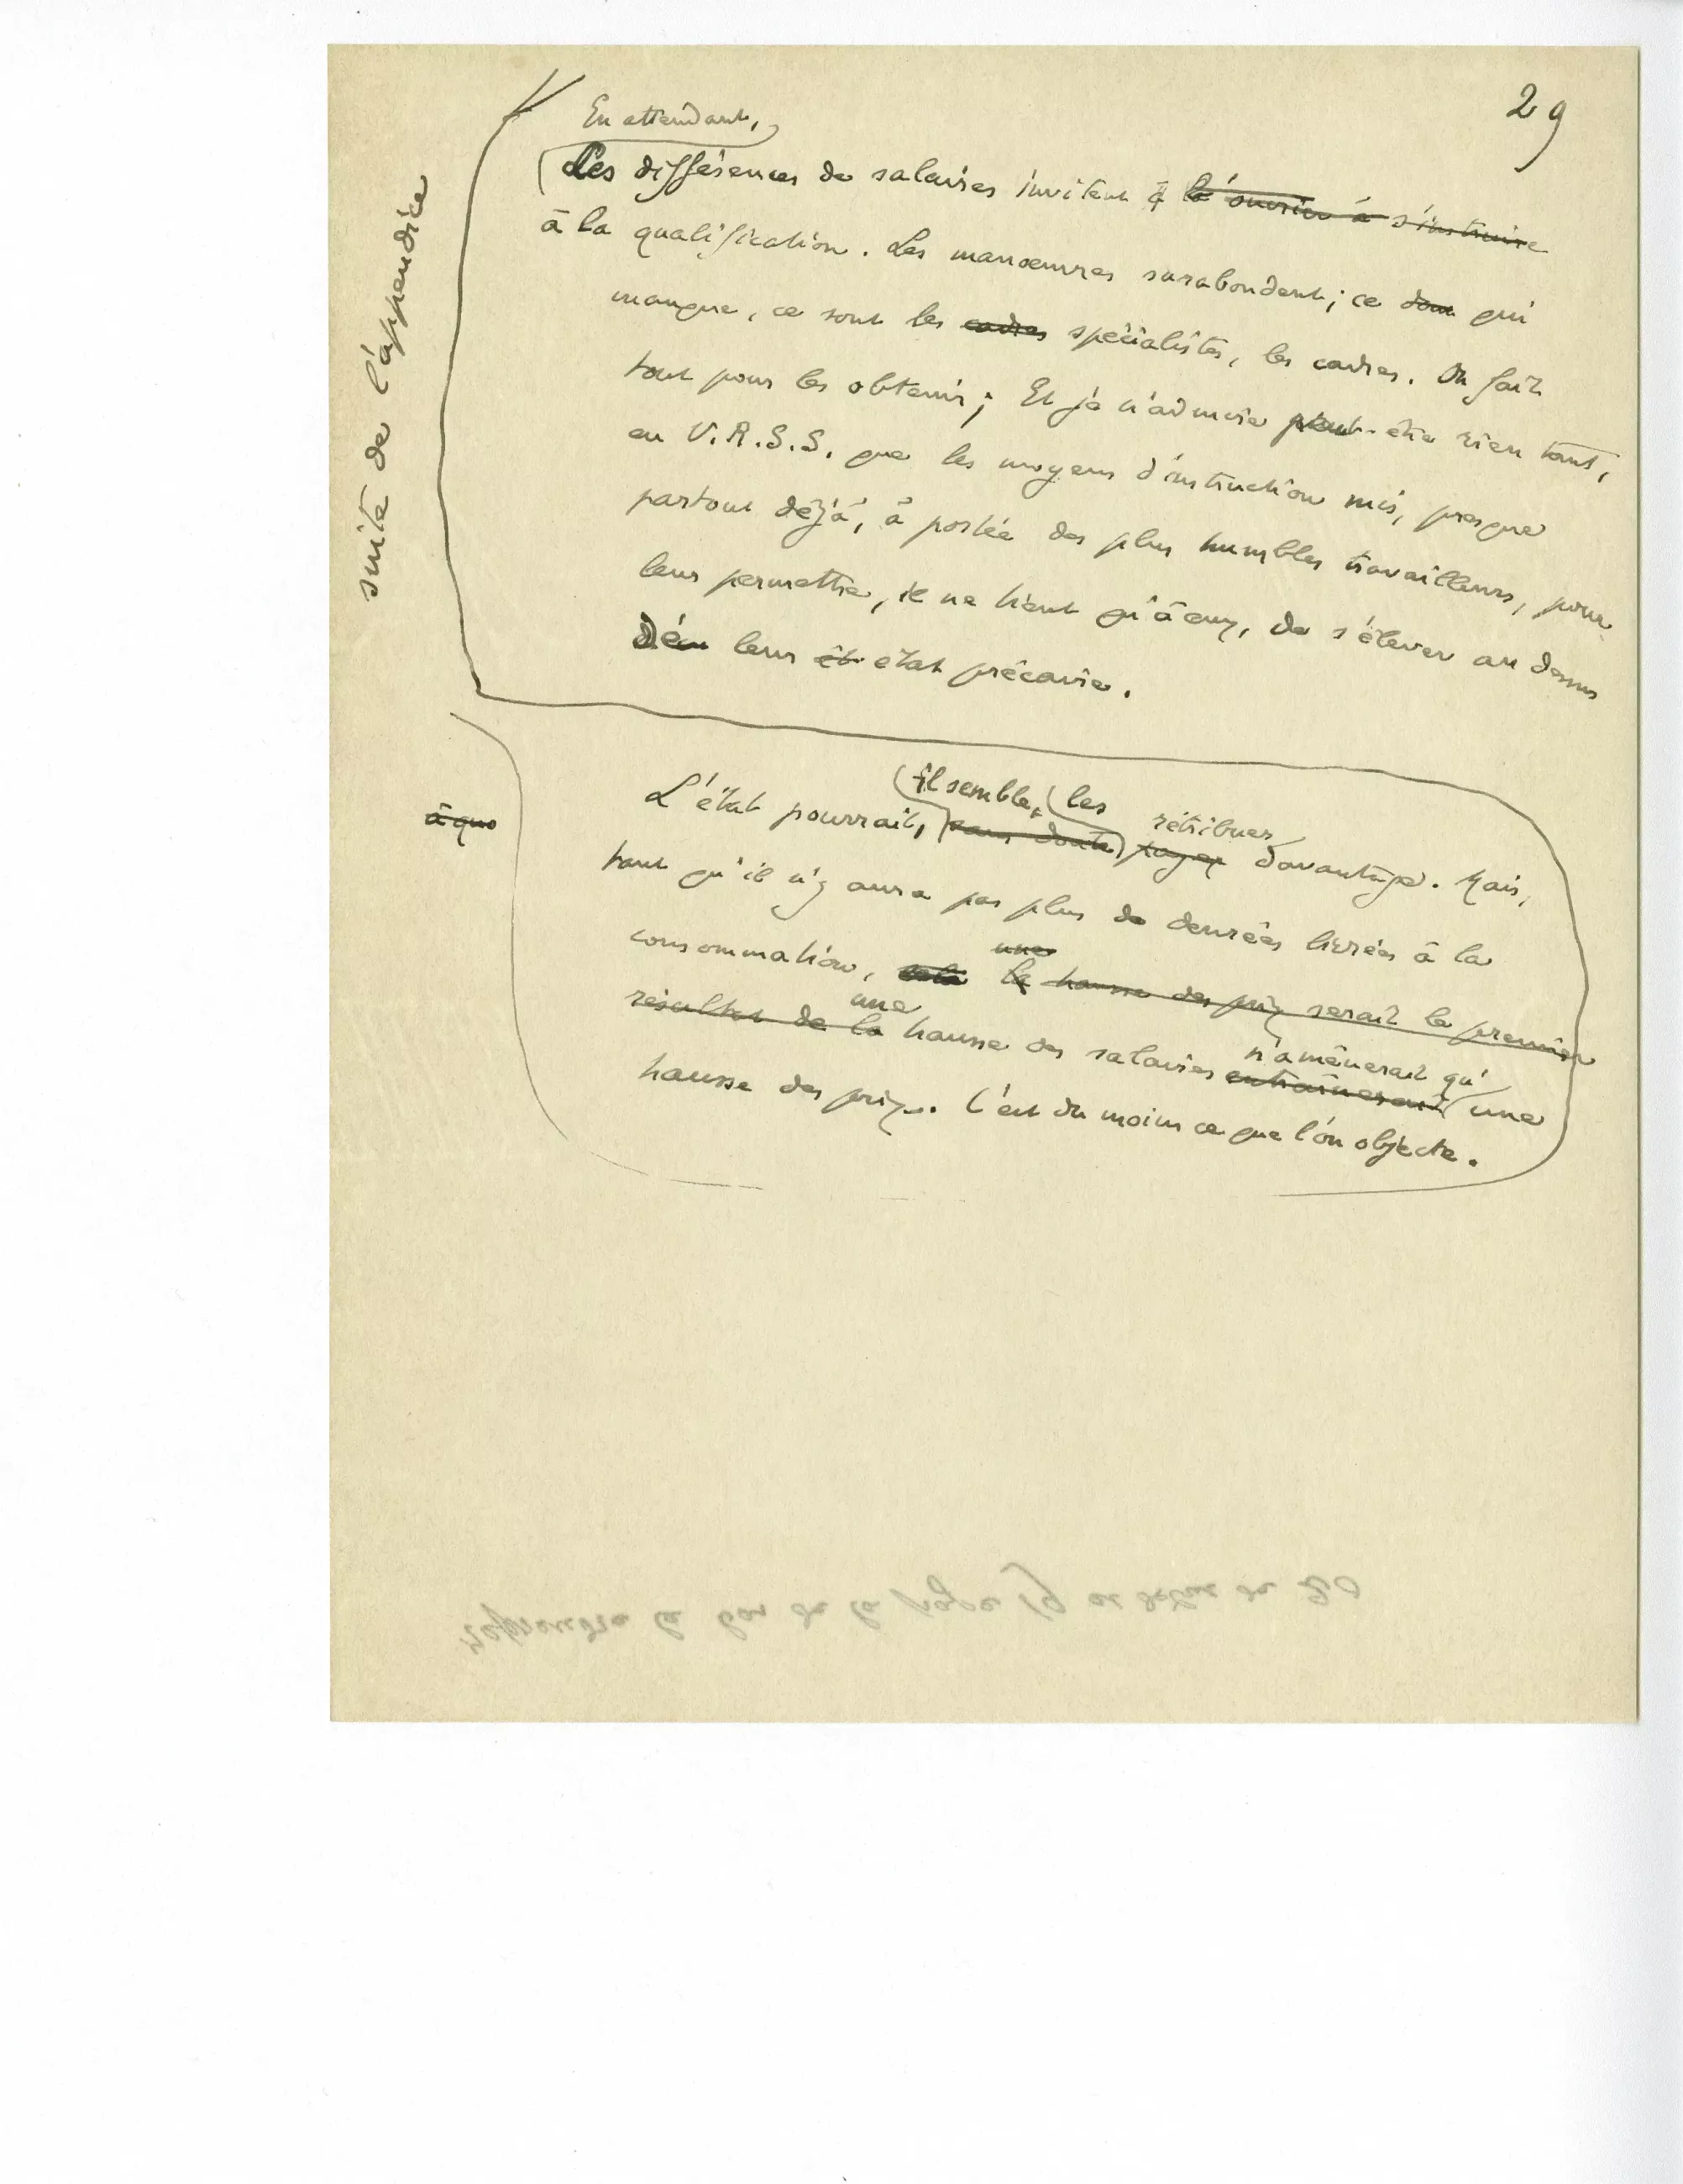 29
suite de l'appendice
En attendant,
Les différences de salaires invitent à l'ouvrier à s'instruire
à la qualification. Les manoeuvres surabondent ; ce dont qui
manque, ce sont les cadres spécialistes, les cadres. On fait
tout pour les obtenir ; Et je n'admire peut-être rien tant,
en U.R.S.S. que les moyens d'instruction mis, presque
partout déjà, à portée des plus humbles travailleurs, pour
leur permettre, il ne tient qu'à eux, de s'élever au dessus
De leur ét état précaire.
il semble, les
rétribuer
à quo
L'état pourrait, sans doute payer davantage. Mais,
tant qu'il n'y aura pas plus de denrées livrées à la
une
consommation, cela la hausse des prix serait le premier
une
résultat de la hausse des salaires entraînerait une
n'amènerait qu'
hausse des prix. C'est du moins ce que l'on objecte.
reprendre le bas de la page 19 et début de 20